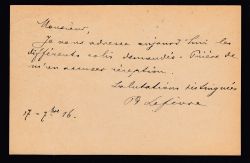 Monsieur,
Je vous adresse aujourd'hui les
différents colis demandés. Prière de
m'en accuser réception.
Salutations distinguées
Lefèvre
17 - 7bre 16.